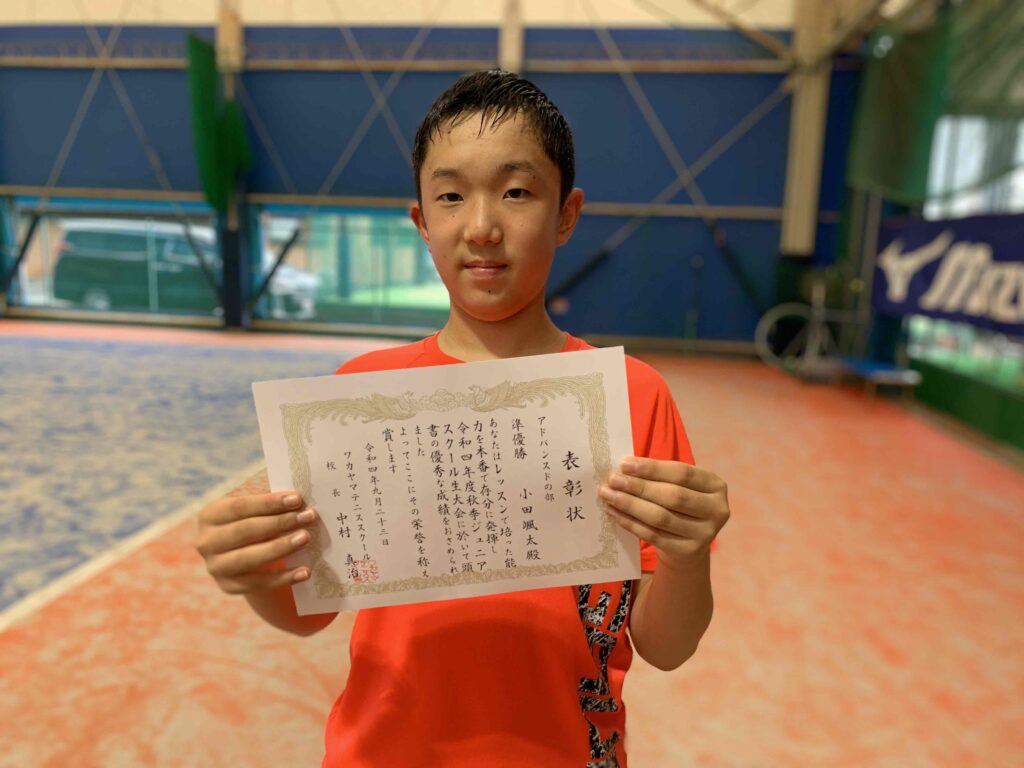 表彰状
アドバンスドの部
準優勝　小田颯太殿
あなたはレッスンで培った能
力を本番で存分に発揮し
令和四年度秋季ジュニア
スクール生大会に於いて頭
書の優秀な成績をおさめられ
ました
よってここにその栄誉を称え
賞します
令和四年九月二十三日
ワカヤマテニススクール
校長　中村　真治